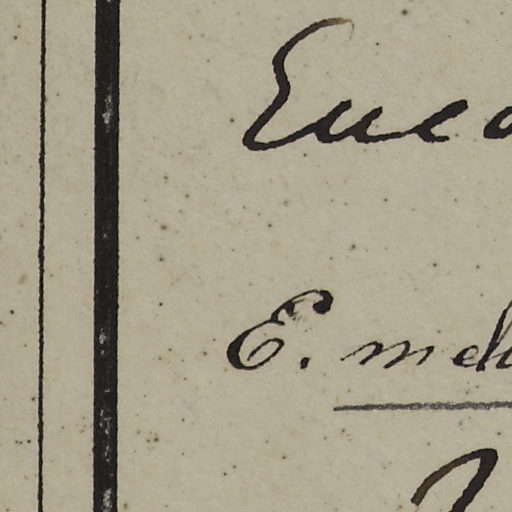 Euca
E. mel